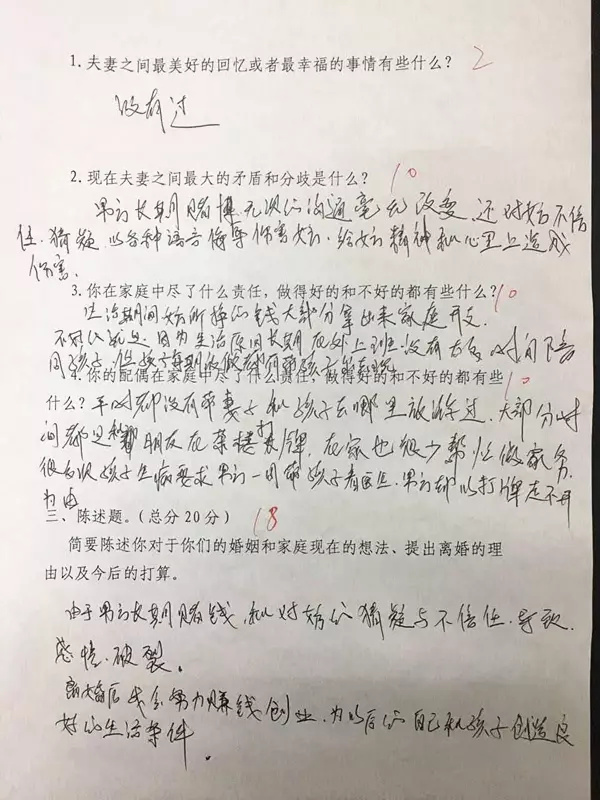 1. 夫妻之间最美好的回忆或者最幸福的事情有些什么? 2
没有过
2. 现在夫妻之间最大的矛盾和分歧是什么? 10
男方长期赌博无次的沟通毫无改变,还对女方不信
任.猜疑.以各种语言侮辱伤害女方.给女方精神和心里上造成
伤害.
3. 你在家庭中尽了什么责任,做得好的和不好的都有些什么? 10
生活期间女方所挣的钱大部分拿出来家庭开支.
不好的就是.因为生活原因长期在外上班.没有太多时间陪
同孩子.
4. 你的配偶在家庭中尽了什么责任,做得好的和不好的都有些 10
什么? 平时都没有带妻子和孩子去哪里放松过.大部分时
间都是和朋友在茶楼打牌.在家也很少帮忙做家务.
孩子生病要求男方一同带孩子看医生.男方却以打牌走不开
为由
三、陈述题。(总分20分) 18
简要陈述你对于你们的婚姻和家庭现在的想法、提出离婚的理
由以及今后的打算。
由于男方长期赌钱,和对女方的猜疑与不信任.导致.
感情.破裂。
离婚后我会努力赚钱创业.为以后的自己和孩子创造良
好的生活条件.